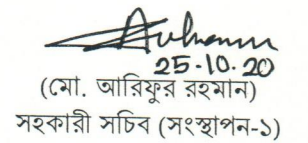 25.10.20
(মো. আরিফুর রহমান)
সহকারী সচিব (সংস্থাপন-১)